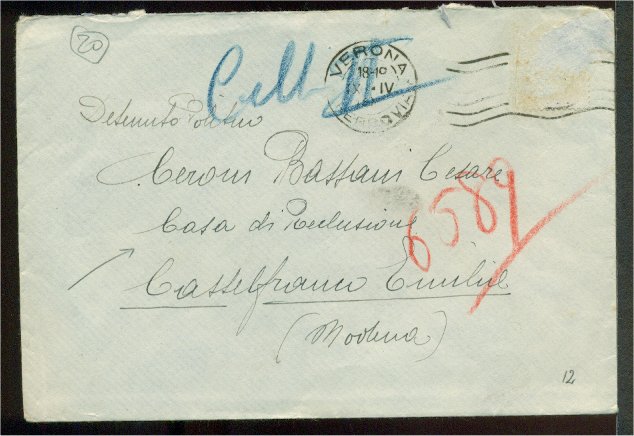 20
Cell. II
VERONA
18-19
X-IV
FERROVIA
Detenuto Politico
Bassani Cesare
Casa di Reclusione
6589
Castelfranco Emilia
(Modena)
12